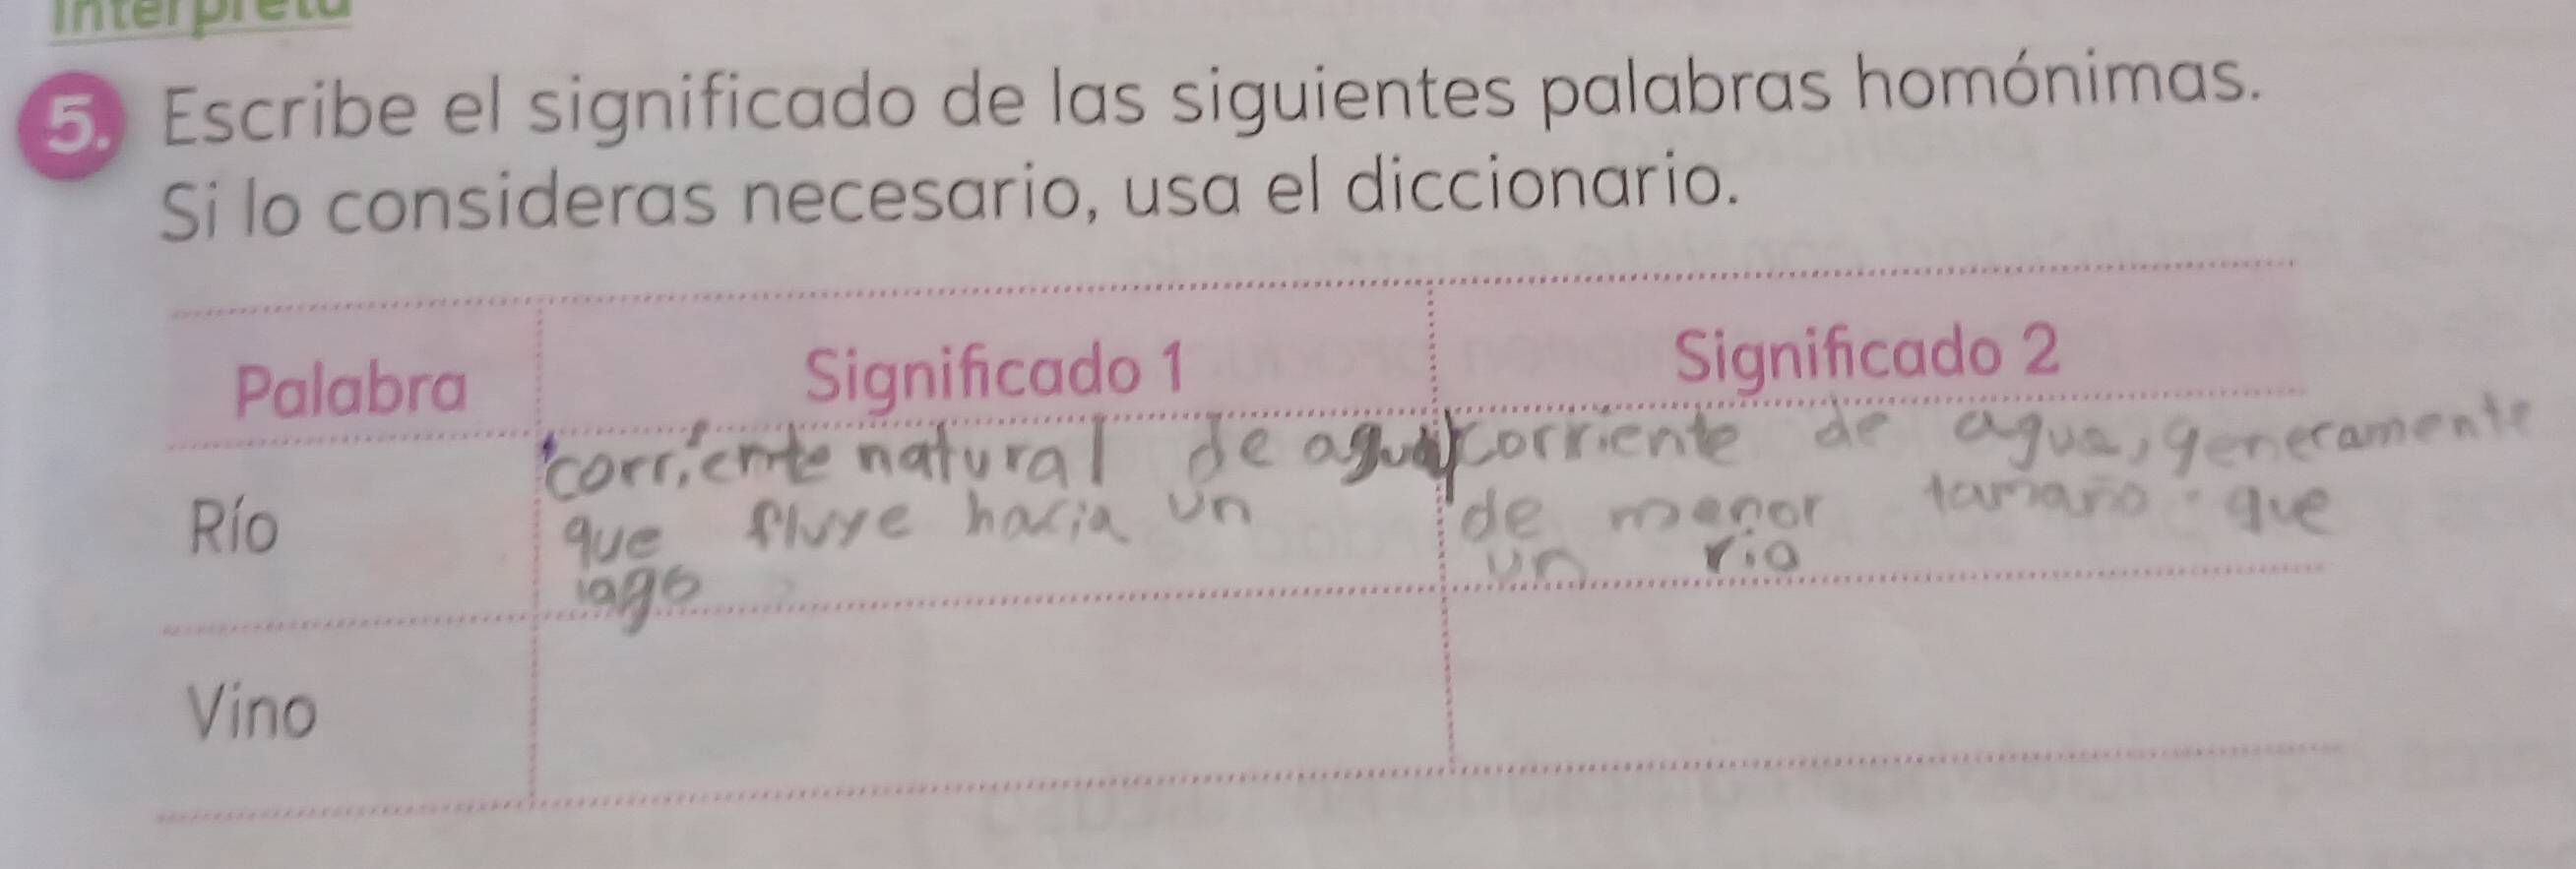 Interpreta
5. Escribe el significado de las siguientes palabras homónimas.
Si lo consideras necesario, usa el diccionario.
Palabra Significado 1 Significado 2
Río
corriente natural de agua
que fluye hacia un
lago
corriente de agua, generamente
de menor tamaño que
un rio
Vino